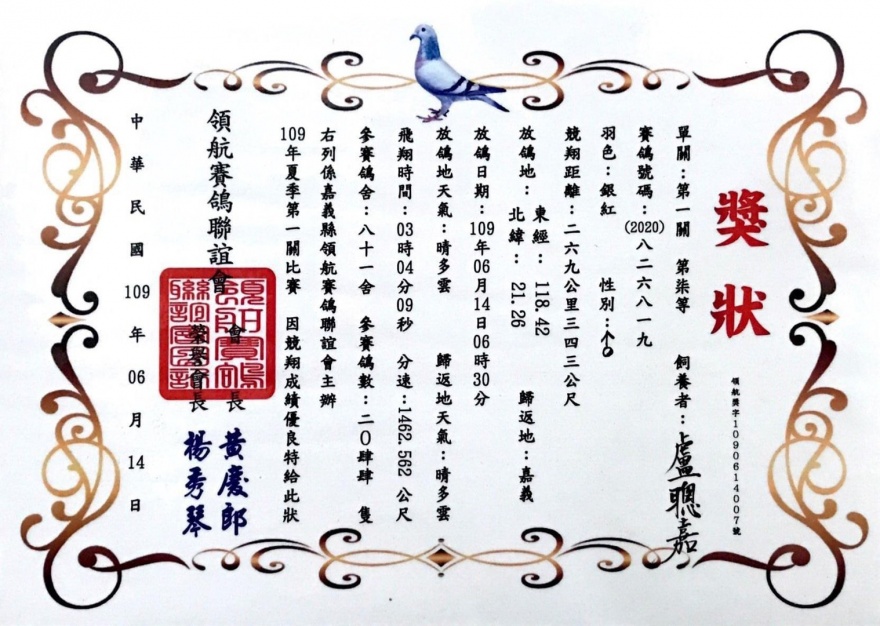 獎狀
領航獎字1090614007號
單關：第一關 第柒等 飼養者：盧聰嘉
賽鴿號碼：(2020)八二六八一九
羽色：銀紅 性別：♂
競翔距離：二六九公里三四三公尺
放鴿地：東經：118.42 北緯：21.26 歸返地：嘉義
放鴿日期：109年06月14日06時30分
放鴿地天氣：晴多雲 歸返地天氣：晴多雲
飛翔時間：03時04分09秒 分速：1462.562公尺
參賽鴿舍：八十一舍 參賽鴿數：二0肆肆 隻
右列係嘉義縣領航賽鴿聯誼會主辦
109年夏季第一關比賽 因競翔成績優良特給此狀
領航賽鴿聯誼會
會長 黃慶郎
榮譽會長 楊秀琴
中華民國109年06月14日